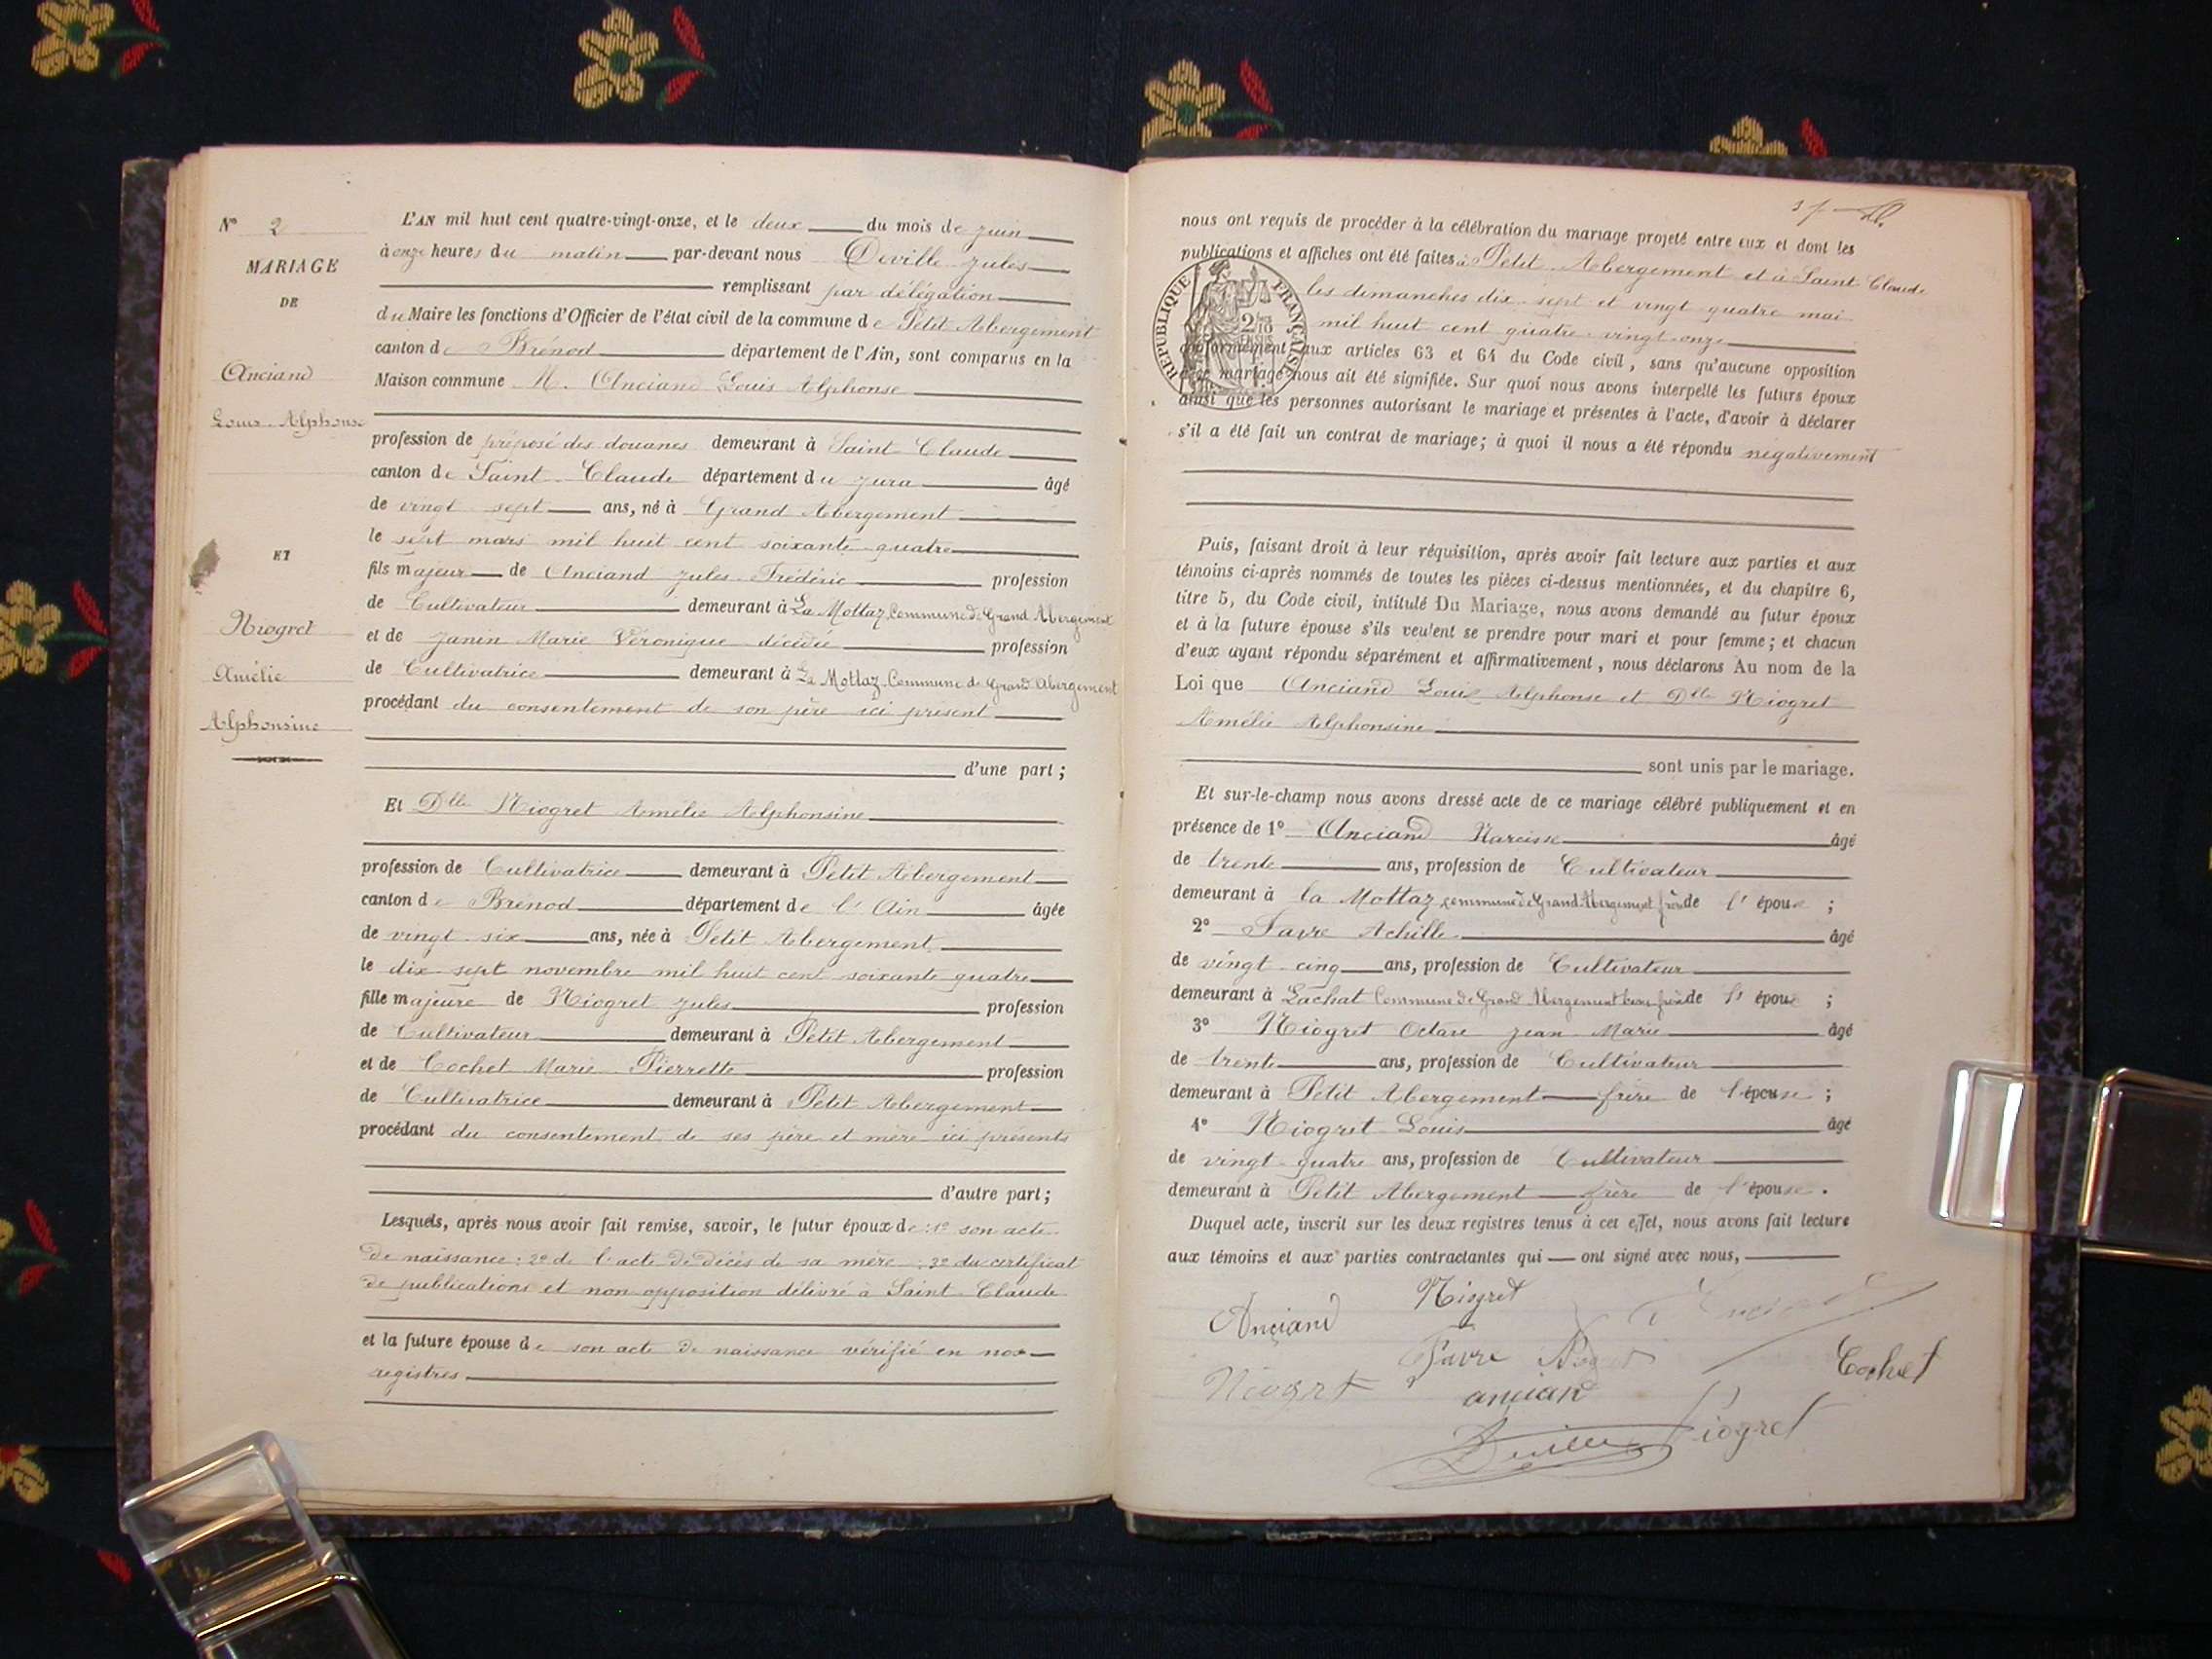 N° 2
MARIAGE
DE
Anciand
Louis Alphonse
ET
Niogret
Amélie
Alphonsine
L'AN mil huit cent quatre-vingt-onze, et le deux du mois de juin
à onze heures du matin par-devant nous Deville Jules
remplissant par délégation
du Maire les fonctions d'Officier de l'état civil de la commune de Petit Abergement
canton de Brénod département de l'Ain, sont comparus en la
Maison commune M. Anciand Louis Alphonse
profession de préposé des douanes demeurant à Saint-Claude
canton de Saint-Claude département du Jura âgé
de vingt sept ans, né à Grand Abergement
le sept mars mil huit cent soixante-quatre
fils majeur de Anciand Jules Frédéric profession
de Cultivateur demeurant à La Mottaz Commune de Grand Abergement
et de Janin Marie Véronique décédée profession
de Cultivatrice demeurant à La Mottaz Commune de Grand Abergement
procédant du consentement de son père ici présent
d'une part ;
Et Dlle Niogret Amélie Alphonsine
profession de Cultivatrice demeurant à Petit Abergement
canton de Brénod département de l'Ain âgée
de vingt-six ans, née à Petit Abergement
le dix-sept novembre mil huit cent soixante quatre
fille majeure de Niogret Jules profession
de Cultivateur demeurant à Petit Abergement
et de Cochet Marie Pierrette profession
de Cultivatrice demeurant à Petit Abergement
procédant du consentement de ses père et mère ici présents
d'autre part ;
Lesquels, après nous avoir fait remise, savoir, le futur époux de : 1° son acte
de naissance ; 2° de l'acte de décès de sa mère ; 3° du certificat
de publications et non opposition délivré à Saint-Claude
et la future épouse de son acte de naissance vérifié en nos
registres
nous ont requis de procéder à la célébration du mariage projeté entre eux et dont les
publications et affiches ont été faites à Petit Abergement et à Saint Claude
les dimanches dix-sept et vingt quatre mai
mil huit cent quatre-vingt-onze
conformément aux articles 63 et 64 du Code civil, sans qu'aucune opposition
à ce mariage nous ait été signifiée. Sur quoi nous avons interpellé les futurs époux
ainsi que les personnes autorisant le mariage et présentes à l'acte, d'avoir à déclarer
s'il a été fait un contrat de mariage ; à quoi il nous a été répondu négativement
RÉPUBLIQUE FRANÇAISE
Puis, faisant droit à leur réquisition, après avoir fait lecture aux parties et aux
témoins ci-après nommés de toutes les pièces ci-dessus mentionnées, et du chapitre 6,
titre 5, du Code civil, intitulé Du Mariage, nous avons demandé au futur époux
et à la future épouse s'ils veulent se prendre pour mari et pour femme ; et chacun
d'eux ayant répondu séparément et affirmativement, nous déclarons Au nom de la
Loi que Anciand Louis Alphonse et Dlle Niogret
Amélie Alphonsine
sont unis par le mariage.
Et sur-le-champ nous avons dressé acte de ce mariage célébré publiquement et en
présence de 1° Anciand Narcisse âgé
de trente ans, profession de Cultivateur
demeurant à la Mottaz commune de Grand Abergement frère de l'époux ;
2° Favre Achille âgé
de vingt-cinq ans, profession de Cultivateur
demeurant à Lachat Commune de Grand Abergement beau frère de l'époux ;
3° Niogret Octave Jean Marie âgé
de trente ans, profession de Cultivateur
demeurant à Petit Abergement frère de l'épouse ;
4° Niogret Louis âgé
de vingt-quatre ans, profession de Cultivateur
demeurant à Petit Abergement frère de l'épouse.
Duquel acte, inscrit sur les deux registres tenus à cet effet, nous avons fait lecture
aux témoins et aux parties contractantes qui ont signé avec nous,
Niogret
Anciand
Favre
Cochet
Niogrt
anciand
Niogret
Deville